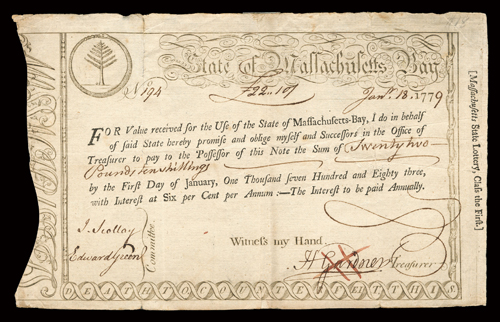 State of Massachusetts Bay
No 194
£22..10/
Jany. 13. 1779
FOR Value received for the Use of the State of Massachusetts-Bay, I do in behalf
of said State hereby promise and oblige myself and Successors in the Office of
Treasurer to pay to the Possessor of this Note the Sum of Twenty two
Pounds ten shillings
by the First Day of January, One Thousand seven Hundred and Eighty three,
with Interest at Six per Cent per Annum:—The Interest to be paid Annually.
J. Scollay
Edward Green
Committee
Witness my Hand,
H Gardner Treasurer
[Massachusetts State Lottery, Class the First.]
DEATH TO COUNTERFEIT THIS